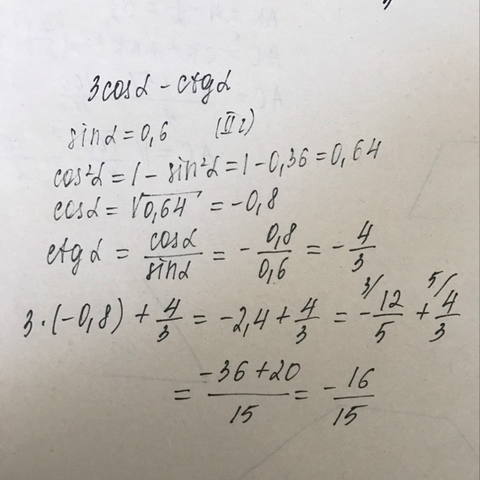 3cosα - ctgα
sinα = 0,6 (II г)
cos²α = 1 - sin²α = 1 - 0,36 = 0,64
cosα = √0,64 = -0,8
ctgα = cosα/sinα = - 0,8/0,6 = - 4/3
3·(-0,8) + 4/3 = -2,4 + 4/3 = - 3/ 12/5 + 5/ 4/3
= (-36+20)/15 = - 16/15